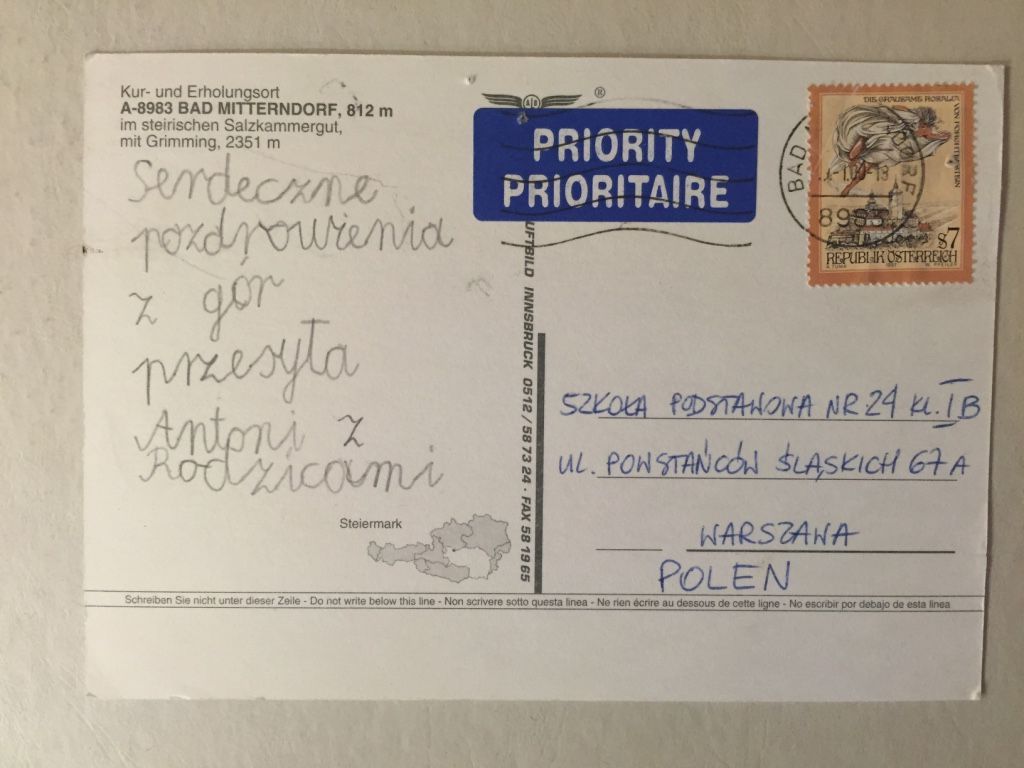 Kur- und Erholungsort
A-8983 BAD MITTERNDORF, 812 m
im steirischen Salzkammergut,
mit Grimming, 2351 m
Serdeczne
pozdrowienia
z gór
przesyła
Antoni z
Rodzicami
Steiermark
®
PRIORITY
PRIORITAIRE
DIE GRAUSAME ROSALIA
VON FORCHTENSTEIN
BAD
DORF
S7
REPUBLIK ÖSTERREICH
LUFTBILD INNSBRUCK 0512 / 58 73 24 · FAX 58 19 65
SZKOŁA PODSTAWOWA NR 24 KL. I B
UL. POWSTAŃCÓW ŚLĄSKICH 67 A
WARSZAWA
POLEN
Schreiben Sie nicht unter dieser Zeile - Do not write below this line - Non scrivere sotto questa linea - Ne rien écrire au dessous de cette ligne - No escribir por debajo de esta linea